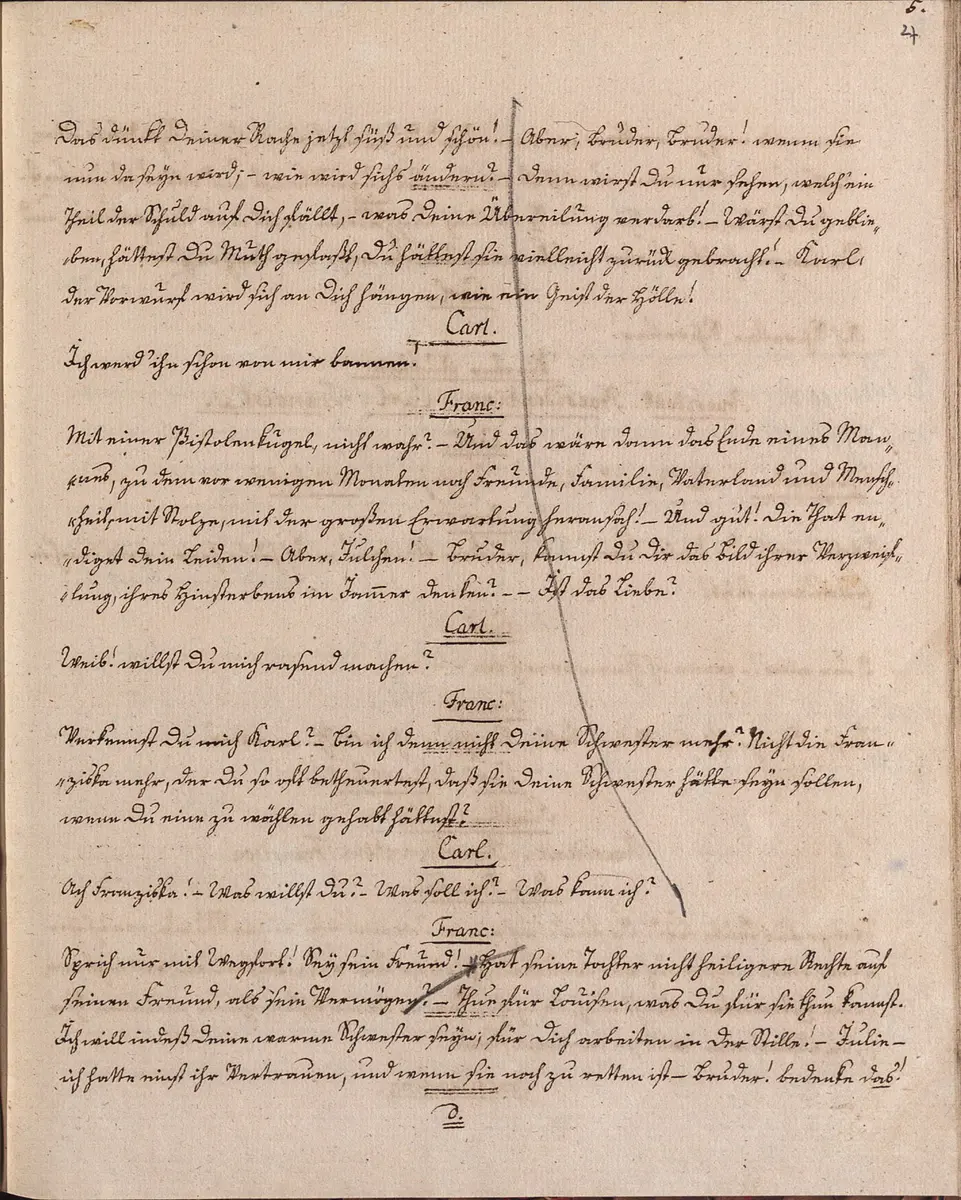 5.
4
Das dünkt Deiner Rache jetzt süß und schön! – Aber, Bruder, Bruder! wenn sie
nun da seyn wird, – wie wird sichs ändern? – Denn wirst Du nur sehen, welch' ein
Theil der Schuld auf Dich fällt, – was Deine Übereilung verdarb! – Wärst Du geblie„
„ben, hättest Du Muth gefaßt, Du hättest sie vielleicht zurück gebracht! – Karl,
der Vorwurf wird sich an Dich hängen, wie ein Geist der Hölle!
Carl.
Ich werd' ihn schon von mir bannen!
Franc:
Mit einer Pistolenkugel, nicht wahr? – Und das wäre dann das Ende eines Man„
„nes, zu dem vor wenigen Monaten noch Freunde, Familie, Vaterland und Mensch„
„heit, mit Stolze, mit der großen Erwartung heransah! – Und gut! Die That en„
„diget Dein Leiden! – Aber, Julchen! – Bruder, kannst Du Dir das Bild ihrer Verzweif„
„lung, ihres Hinsterbens im Jammer denken? – – Ist das Liebe?
Carl.
Weib! willst Du mich rasend machen?
Franc:
Verkennst Du mich Karl? – Bin ich denn nicht Deine Schwester mehr? Nicht die Fran„
„ziska mehr, der Du so oft betheuertest, daß sie Deine Schwester hätte seyn sollen,
wenn Du eine zu wählen gehabt hättest?
Carl.
Ach Franziska! – Was willst Du? – Was soll ich? – Was kann ich?
Franc:
Sprich nur mit Wegfort! Sey sein Freund! – Hat seine Tochter nicht heiligere Rechte auf
seinen Freund, als sein Vermögen? – Thue für Louisen, was Du für sie thun kannst.
Ich will indeß Deine warme Schwester seyn, für Dich arbeiten in der Stille! – Julie –
ich hatte einst ihr Vertrauen, und wenn sie noch zu retten ist – Bruder! bedenke das!
D.